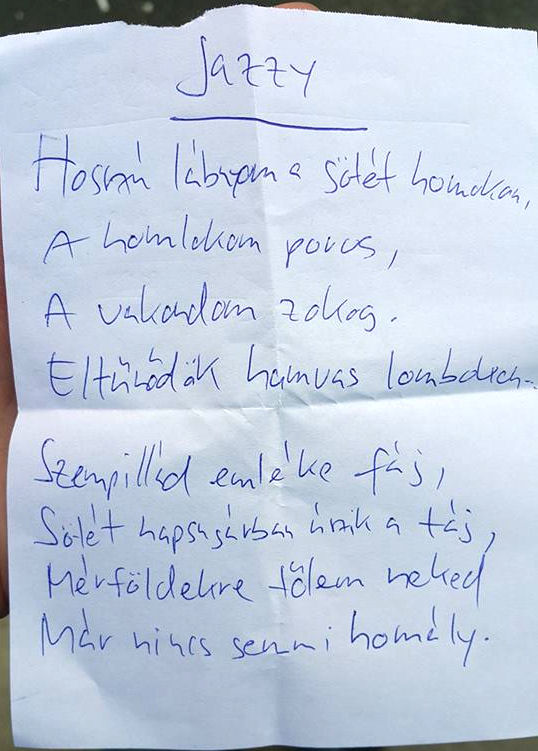 Jazzy
Hosszú lábnyom a sötét homokon,
A homlokom poros,
A vakondom zokog.
Eltűnődök hamvas lombokon
Szempillád emléke fáj,
Sötét napsugárban úszik a táj,
Mérföldekre tőlem neked
Már nincs semmi homály.